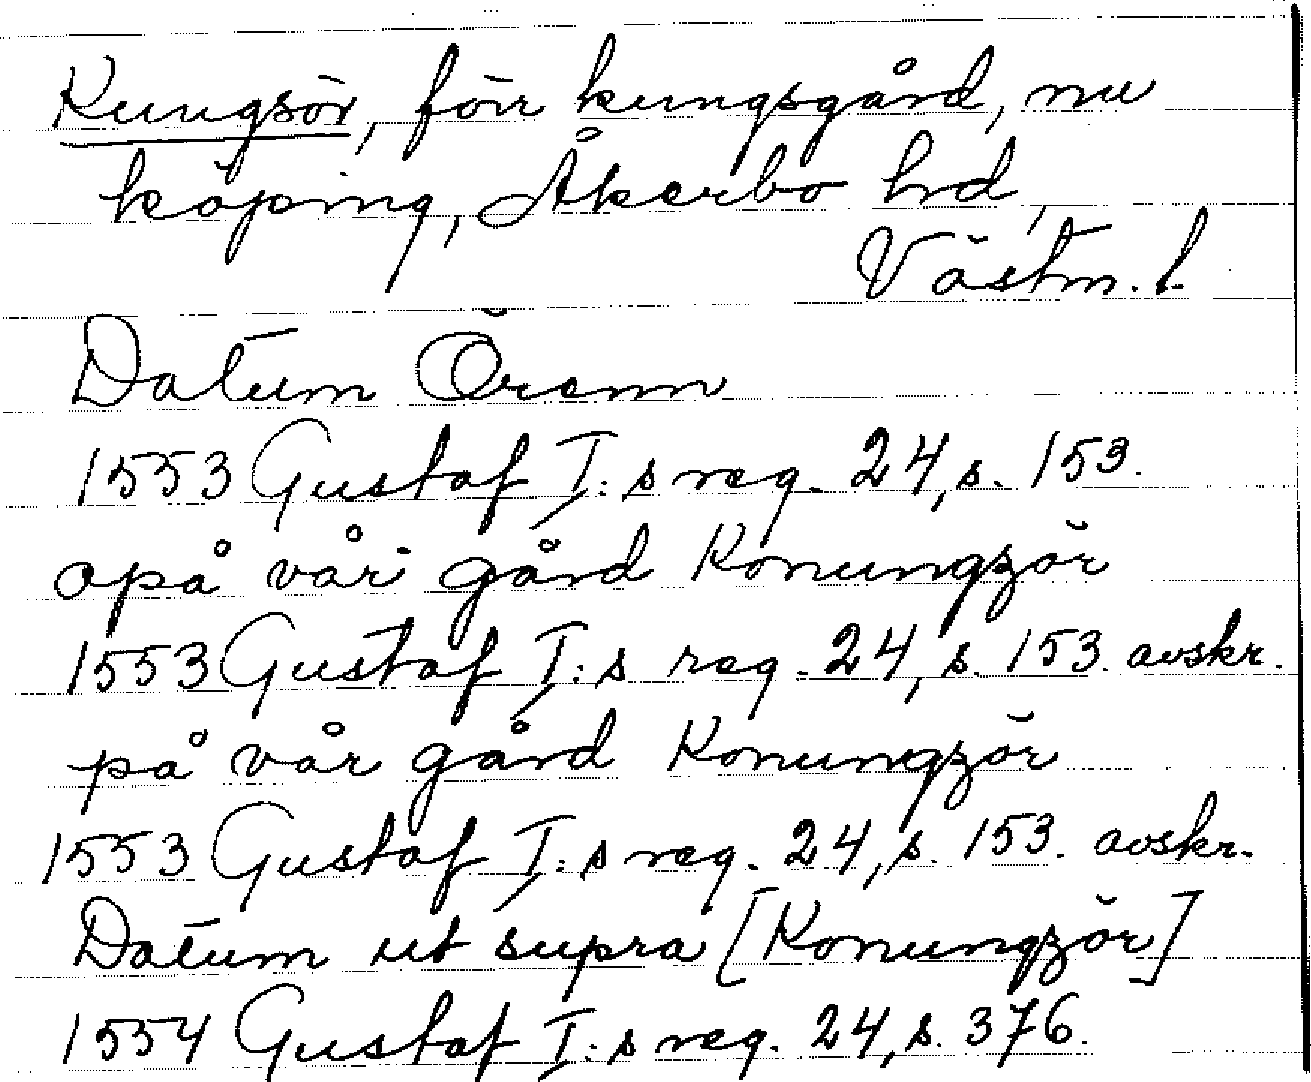 Kungsör, förr kungsgård, nu
köping, Åkerbo hd,
Västm. l.
Datum Örenn
1553 Gustaf I:s reg. 24, s. 153.
opå vår gård Konungzör
1553 Gustaf I:s reg. 24, s. 153. avskr.
på vår gård Konungzör
1553 Gustaf I:s reg. 24, s. 153. avskr.
Datum ut supra [Konungzör]
1554 Gustaf I:s reg. 24, s. 376.